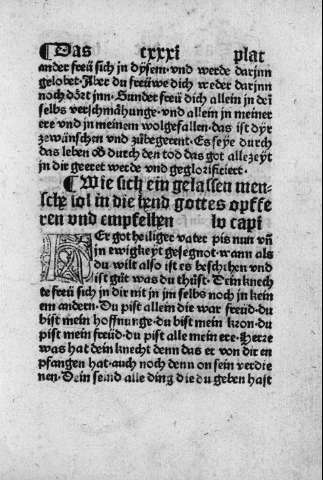 ¶ Das cxxxi plat
ander freü sich jn dÿsem·vnd werde darjnn
gelobet·Aber du freüwe dich weder darjnn
noch dört jnn·Sunder freü dich allein jn deī
selbs verschmähunge·vnd allein jn meiner
ere vnd jn meinem wolgefallen·das ist dyr
zewünschen vnd zůbegerent·Es seÿe durch
das leben od durch den tod das got allezeÿt
jn dir geeret werde vnd geglorificiert·
¶ Wie sich ein gelassen men-
sche sol in die hend gottes opffe
ren vnd empfelhen lv capi
HEr got heiliger vater pis nun vñ
jn ewigkeyt gesegnot·wann als
du wilt also ist es beschehen vnd
ist gůt was du thůst·Dein knech
te freü sich jn dir nit jn jm selbs noch jn kein
em andern·Du pist allein die war freüd·du
bist mein hoffnunge·du bist mein kron·du
pist mein freüd·du pist alle mein ere·Herre
was hat dein knecht denn das er von dir en
pfangen hat·auch noch denn on sein verdie
nen·Dein seind alle ding die du geben hast